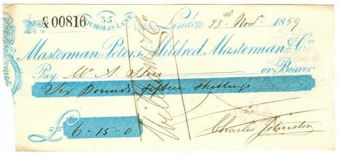 No. C/A 00816
35
NICHOLAS LANE
London 23rd Novr 1859
Masterman, Peters, Mildred, Masterman & Co.
Pay Mr A. or Bearer
Six Pounds fifteen Shillings
£ 6-15-0
Charles Johnston